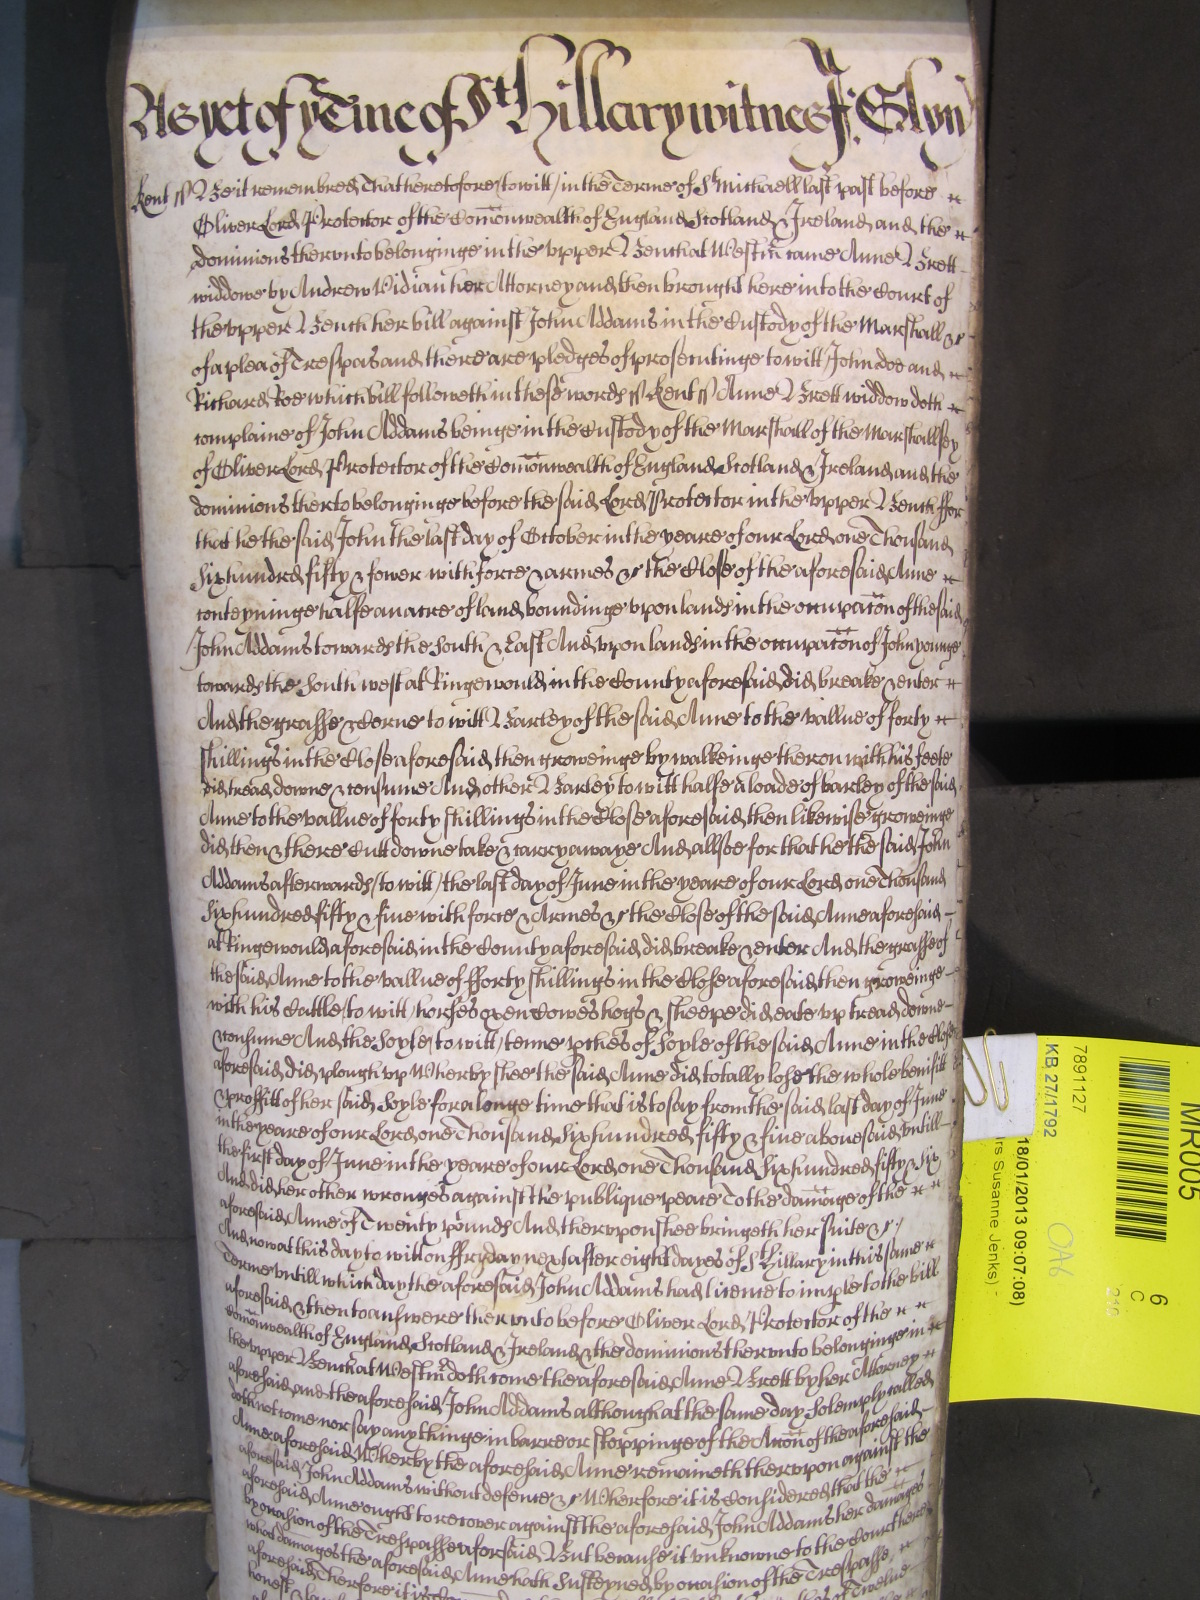 As yet of ye Terme of St Hillary witnes J: Glyn
Kent ss Be it remembred That heretofore (to witt) in the Terme of St Michaell last past before
Oliver Lord Protector of the Com̄onwealth of England Scotland & Ireland and the
dominions therunto belonginge in the upper Bench at Westm̄ came Anne Brett
widdowe by Andrew Vidian her Attorney and then brought here into the Court of
the upper Bench her bill against John Addams in the Custody of the Marshall &c
of a plea of Trespas and there are pledges of prosecutinge to witt John doe and
Richard Roe which bill followeth in these words ss Kent ss Anne Brett widdow doth
complaine of John Addams beinge in the Custody of the Marshall of the Marshallsey
of Oliver Lord Protector of the Com̄onwealth of England Scotland & Ireland and the
dominions therto belonginge before the said Lord Protector in the upper Bench ffor
that he the said John the last day of October in the yeare of our Lord one Thousand
six hundred fifty & fower with force & armes &c the Close of the aforesaid Anne
conteyninge halfe an acre of land boundinge upon lands in the occupac̄on of the said
John Addams towards the South & East And upon lands in the occupac̄on of John younge
towards the South west at Ringewould in the County aforesaid did breake & enter
And the grasse & Corne to witt Barley of the said Anne to the vallue of forty
shillings in the Close aforesaid then groweinge by walkeinge theron with his feete
did tread downe & consume And other Barley to witt halfe a loade of barley of the said
Anne to the vallue of forty shillings in the Close aforesaid then likewise groweinge
did then & there Cutt downe take & carry awaye And allsoe for that he the said John
Addams afterwards (to witt) the last day of June in the yeare of our Lord one Thousand
six hundred fifty & five with force & Armes &c the Close of the said Anne aforesaid
at Ringewould aforesaid in the County aforesaid did breake & enter And the grasse of
the said Anne to the vallue of fforty shillings in the Close aforesaid then groweinge
with his Cattle (to witt) horses oxen Cowes hogs & sheepe did eate up tread downe
& consume And the Soyle (to witt) tenne p̲ches of Soyle of the said Anne in the Close
aforesaid did plough up Wherby shee the said Anne did totally lose the whole benifitt
& proffitt of her said Soyle for a longe time that is to say from the said last day of June
in the yeare of our Lord one Thousand six hundred fifty & five abovesaid untill
the first day of June in the yeare of our Lord one Thousand six hundred fifty & six
And did her other wronges against the publique peace To the dam̄age of the
aforesaid Anne of Twenty pounds And therupon shee bringeth her suite &c
And now at this day to witt on ffryday next after eight dayes of St Hillary in this same
Terme untill which day the aforesaid John Addams had licence to imp̲le to the bill
aforesaid & then to answere therunto before Oliver Lord Protector of the
Com̄onwealth of England Scotland & Ireland & the dominions therunto belonginge in
the upper Bench at Westm̄ doth come the aforesaid Anne Brett by her Attorney
aforesaid and the aforesaid John Addams although at the same day solemply called
doth not come nor say any thinge in barre or stoppinge of the Acc̄on of the aforesaid
Anne aforesaid Wherby the aforesaid Anne remaineth therupon against the
aforesaid John Addams without defence &c Wherfore it is Considered that the
aforesaid Anne ought to recover against the aforesaid John Addams her damages
by occasion of the Trespasse aforesaid But because it unknowne to the Court here
what dam̄ages the aforesaid Anne hath susteyned by occasion of the Trespasse
aforesaid Therfore it is of Twelve
honest &
MR005
6
C
7891127
KB 27/1792
18/01/2013 09:07:08)
rs Susanne Jenks) -
OA6